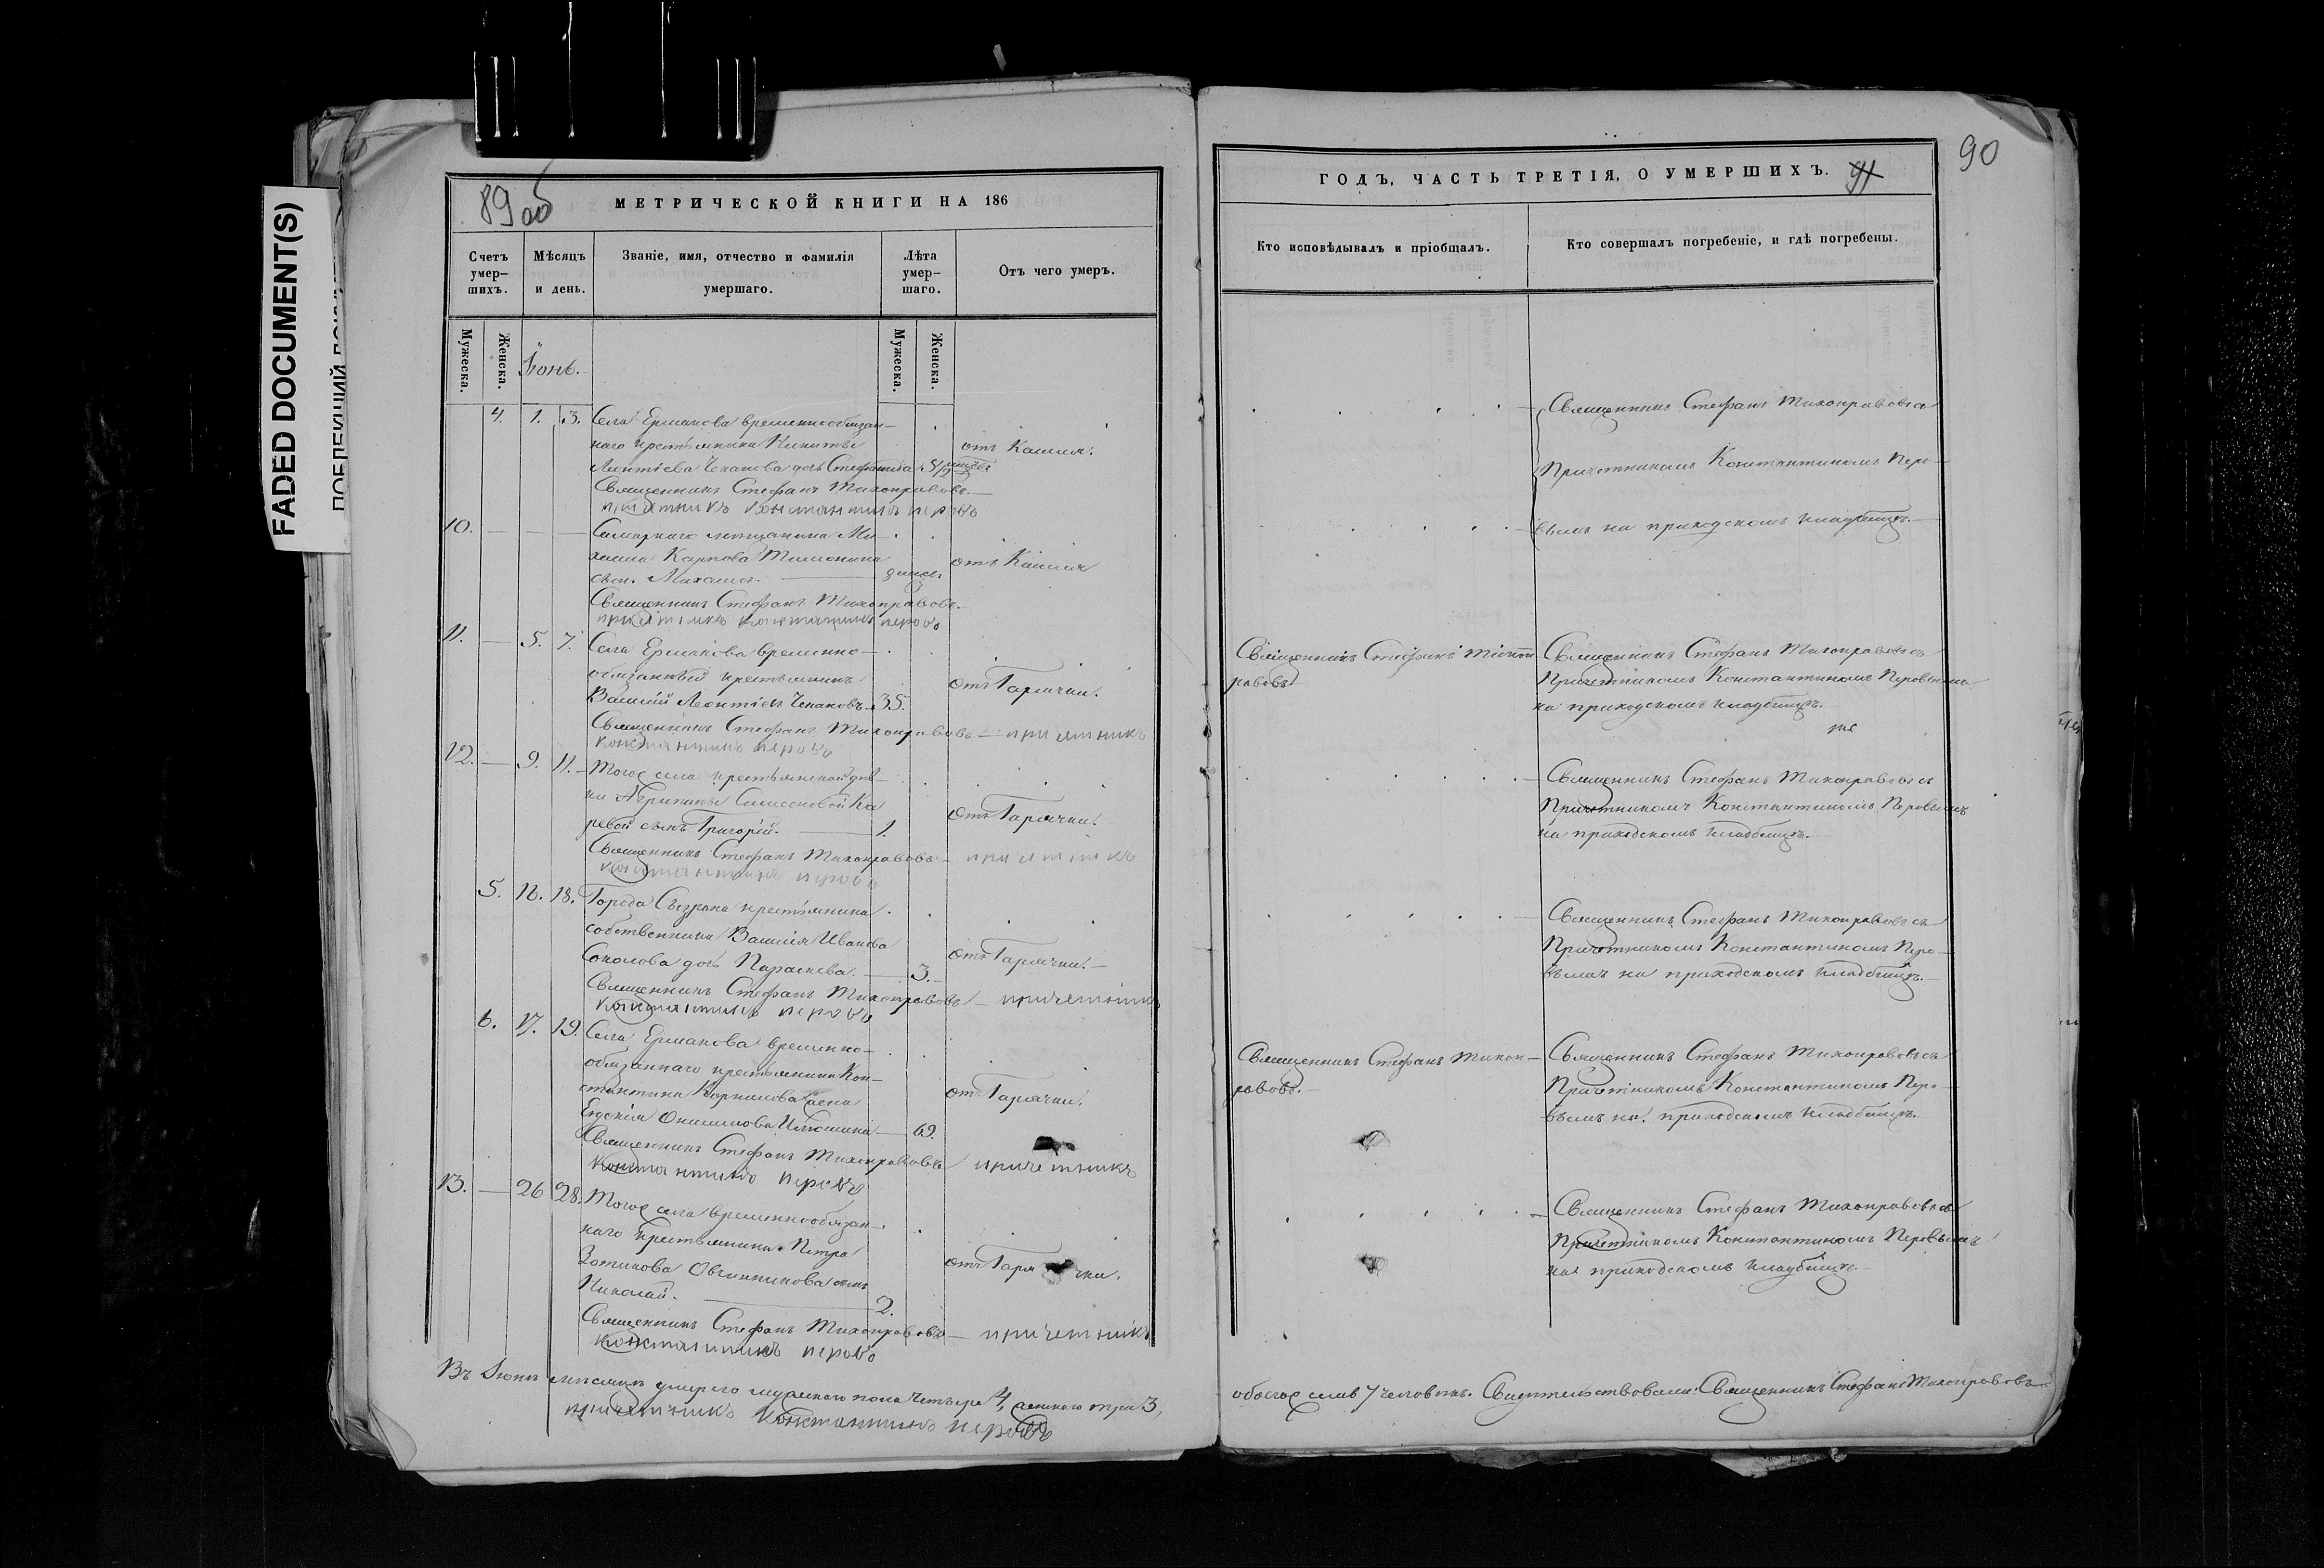 FADED DOCUMENT(S)
89 об
МЕТРИЧЕСКОЙ КНИГИ НА 186
Счетъ умер-шихъ.
Мѣсяцъ и день.
Званіе, имя, отчество и фамилія умершаго.
Лѣта умер-шаго.
Отъ чего умеръ.
Мужеска.
Женска.
Мужеска.
Женска.
Іюнь.
4. 1. 3. Села Ермакова временнообязан-
наго крестьянина Никиты
Леонтіева Чеканова дочь Стефанида
отъ Кашля.
Священникъ Стефанъ Тихонравовъ.
причетникъ Константинъ перовъ
10. — — — Самарскаго мѣщанина Ми-
хаила Карпова Тимонина
сын. Михаилъ.
отъ Кашля
Священникъ Стефанъ Тихонравовъ.
причетникъ константинъ перовъ
11. — 5. 7. Села Ермакова временно-
обязанный крестьянинъ
Василій Леонтіевъ Чекановъ. 35.
отъ Горячки.
Священникъ Стефанъ Тихонравовъ — причетникъ
константинъ перовъ
12. — 9. 11. Тогоже села крестьянской дѣв-
ки Агрипины Симеоновой Ка
ревой сынъ Григорій. — 1.
отъ Горячки.
Священникъ Стефанъ Тихонравовъ — причетникъ
константинъ перовъ
5. 16. 18. Города Сызрана крестьянина
собственника Василія Иванова
Соколова дочь Параскева. — 3.
отъ Горячки.
Священникъ Стефанъ Тихонравовъ — причетникъ
константинъ перовъ
6. 17. 19. Села Ермакова временно-
обязаннаго крестьянина Кон-
стантина Корнилова жена
Евдокія Онисимова Илюшина — 69.
отъ Горячки.
Священникъ Стефанъ Тихонравовъ причетникъ
константинъ перовъ
13. — 26 28. Тогоже села временнообязан-
наго крестьянина Петра
Зотикова Овчинникова сынъ
Николай. — 2.
отъ Горячки.
Священникъ Стефанъ Тихонравовъ — причетникъ
константинъ перовъ
Въ Іюнѣ мѣсяцѣ умерло мужескаго пола четыре 4, женскаго три 3,
причетникъ константинъ перовъ
90
ГОДЪ, ЧАСТЬ ТРЕТІЯ, О УМЕРШИХЪ.
Кто исповѣдывалъ и пріобщалъ.
Кто совершалъ погребеніе, и гдѣ погребены.
Священникъ Стефанъ Тихонравовъ съ
Причетникомъ Константиномъ Перо-
вымъ на приходскомъ кладбищѣ.
Священникъ Стефанъ Тихон
равовъ
Священникъ Стефанъ Тихонравовъ съ
Причетникомъ Константиномъ Перовымъ
на приходскомъ кладбищѣ.
Священникъ Стефанъ Тихонравовъ съ
Причетникомъ Константиномъ Перовымъ
на приходскомъ кладбищѣ.
Священникъ Стефанъ Тихонравовъ съ
Причетникомъ Константиномъ Перо-
вымъ на приходскомъ кладбищѣ.
Священникъ Стефанъ Тихон-
равовъ.
Священникъ Стефанъ Тихонравовъ съ
Причетникомъ Константиномъ Перо-
вымъ на приходскомъ кладбищѣ.
Священникъ Стефанъ Тихонравовъ съ
Причетникомъ Константиномъ Перовымъ
на приходскомъ кладбищѣ.
обоего же пола 7 человѣкъ. Свидѣтельствовали: Священникъ Стефанъ Тихонравовъ